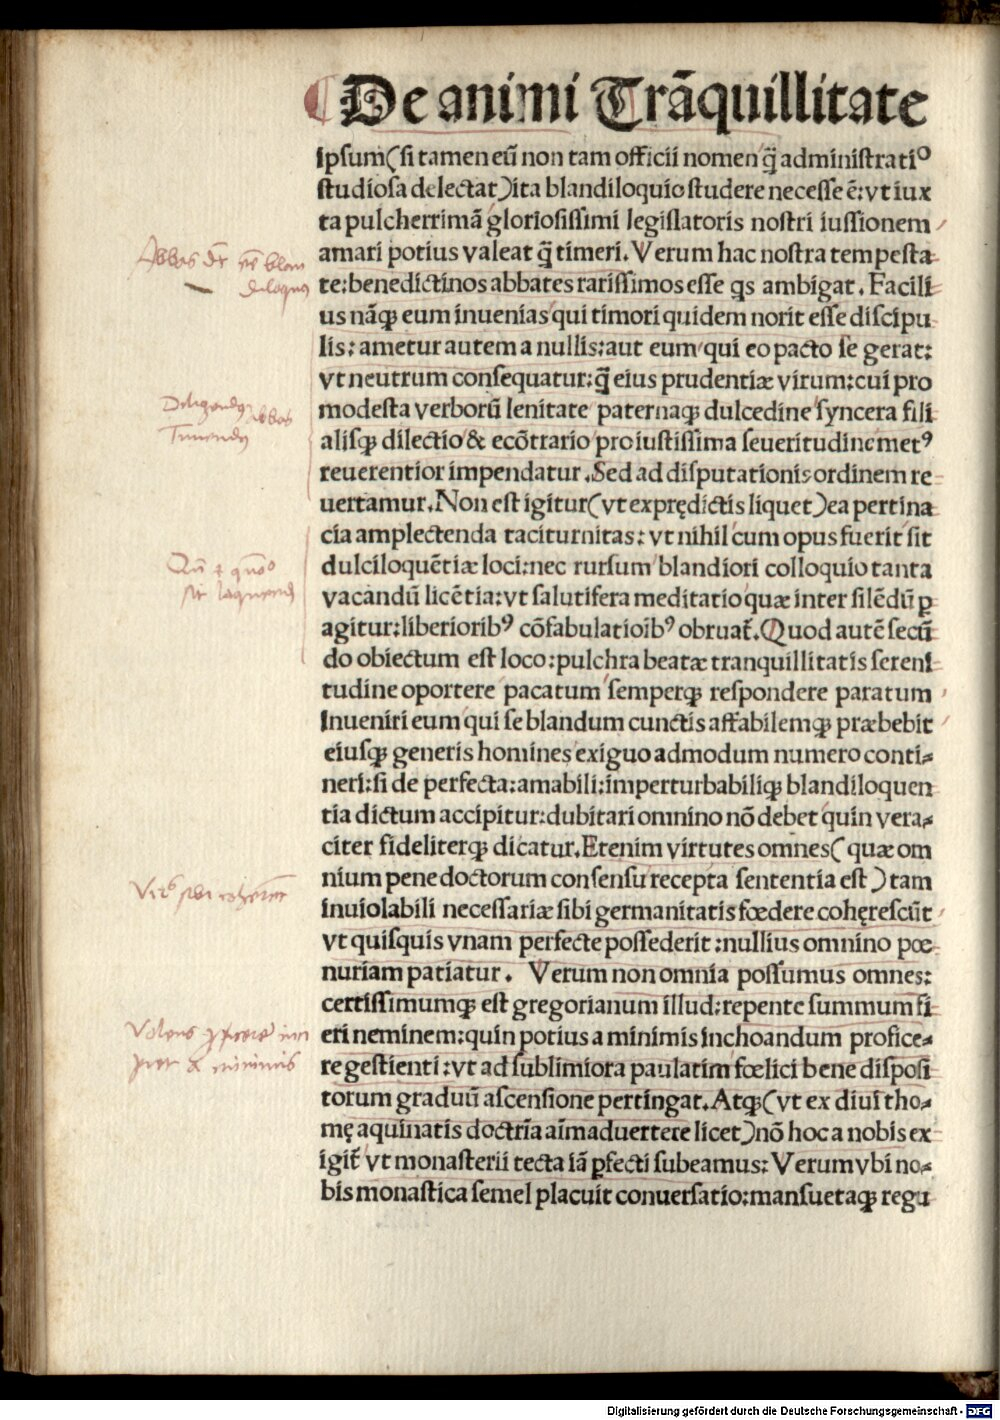 De animi Trãquillitate
ipsum(si tamen eũ non tam officii nomen q̃ administratiº
studiosa delectat)ita blandiloquio studere necesse ẽ:vt iux
ta pulcherrimã gloriosissimi legislatoris nostri iussionem
amari potius valeat q̃ timeri. Verum hac nostra tempesta-
te:benedictinos abbates rarissimos esse qs ambigat. Facili-
us nãqꝫ eum inuenias qui timori quidem norit esse discipu-
lis: ametur autem a nullis:aut eum qui eo pacto se gerat:
vt neutrum consequatur:q̃ eius prudentiæ virum:cui pro
modesta verborũ lenitate paternaqꝫ dulcedine syncera fili
alisqꝫ dilectio & ecõtrario pro iustissima seueritudine metꝰ
reuerentior impendatur. Sed ad disputationis ordinem re-
uertamur. Non est igitur(vt ex prędictis liquet)ea pertina
cia amplectenda taciturnitas: vt nihil cum opus fuerit sit
dulciloquẽtiæ loci:nec rursum blandiori colloquio tanta
vacandũ licẽtia:vt salutifera meditatio quæ inter silẽdũ ꝑ
agitur:liberioribꝰ cõfabulatioĩbꝰ obruat̃. Quod autẽ secũ-
do obiectum est loco:pulchra beatæ tranquillitatis sereni-
tudine oportere pacatum semperqꝫ respondere paratum
Inueniri eum qui se blandum cunctis affabilemqꝫ præbebit
eiusqꝫ generis homines exiguo admodum numero conti-
neri:si de perfecta:amabili:imperturbabiliqꝫ blandiloquen-
tia dictum accipitur:dubitari omnino nõ debet quin vera-
citer fideliterqꝫ dicatur. Etenim virtutes omnes(quæ om
nium pene doctorum consensu recepta sententia est)tam
inuiolabili necessariæ sibi germanitatis fœdere cohęrescũt
vt quisquis vnam perfecte possederit:nullius omnino pœ-
nuriam patiatur. Verum non omnia possumus omnes:
certissimumqꝫ est gregorianum illud:repente summum fi-
eri neminem:quin potius a minimis inchoandum profice-
re gestienti:vt ad sublimiora paulatim fœlici bene disposi-
torum graduũ ascensione pertingat. Atqꝫ(vt ex diui tho-
mę aquinatis doctrĩa aĩmaduertere licet)nõ hoc a nobis ex-
igit̃ vt monasterii tecta iã ꝑfecti subeamus: Verum vbi no-
bis monastica semel placuit conuersatio:mansuetaqꝫ regu
Digitalisierung gefördert durch die Deutsche Forschungsgemeinschaft - DFG